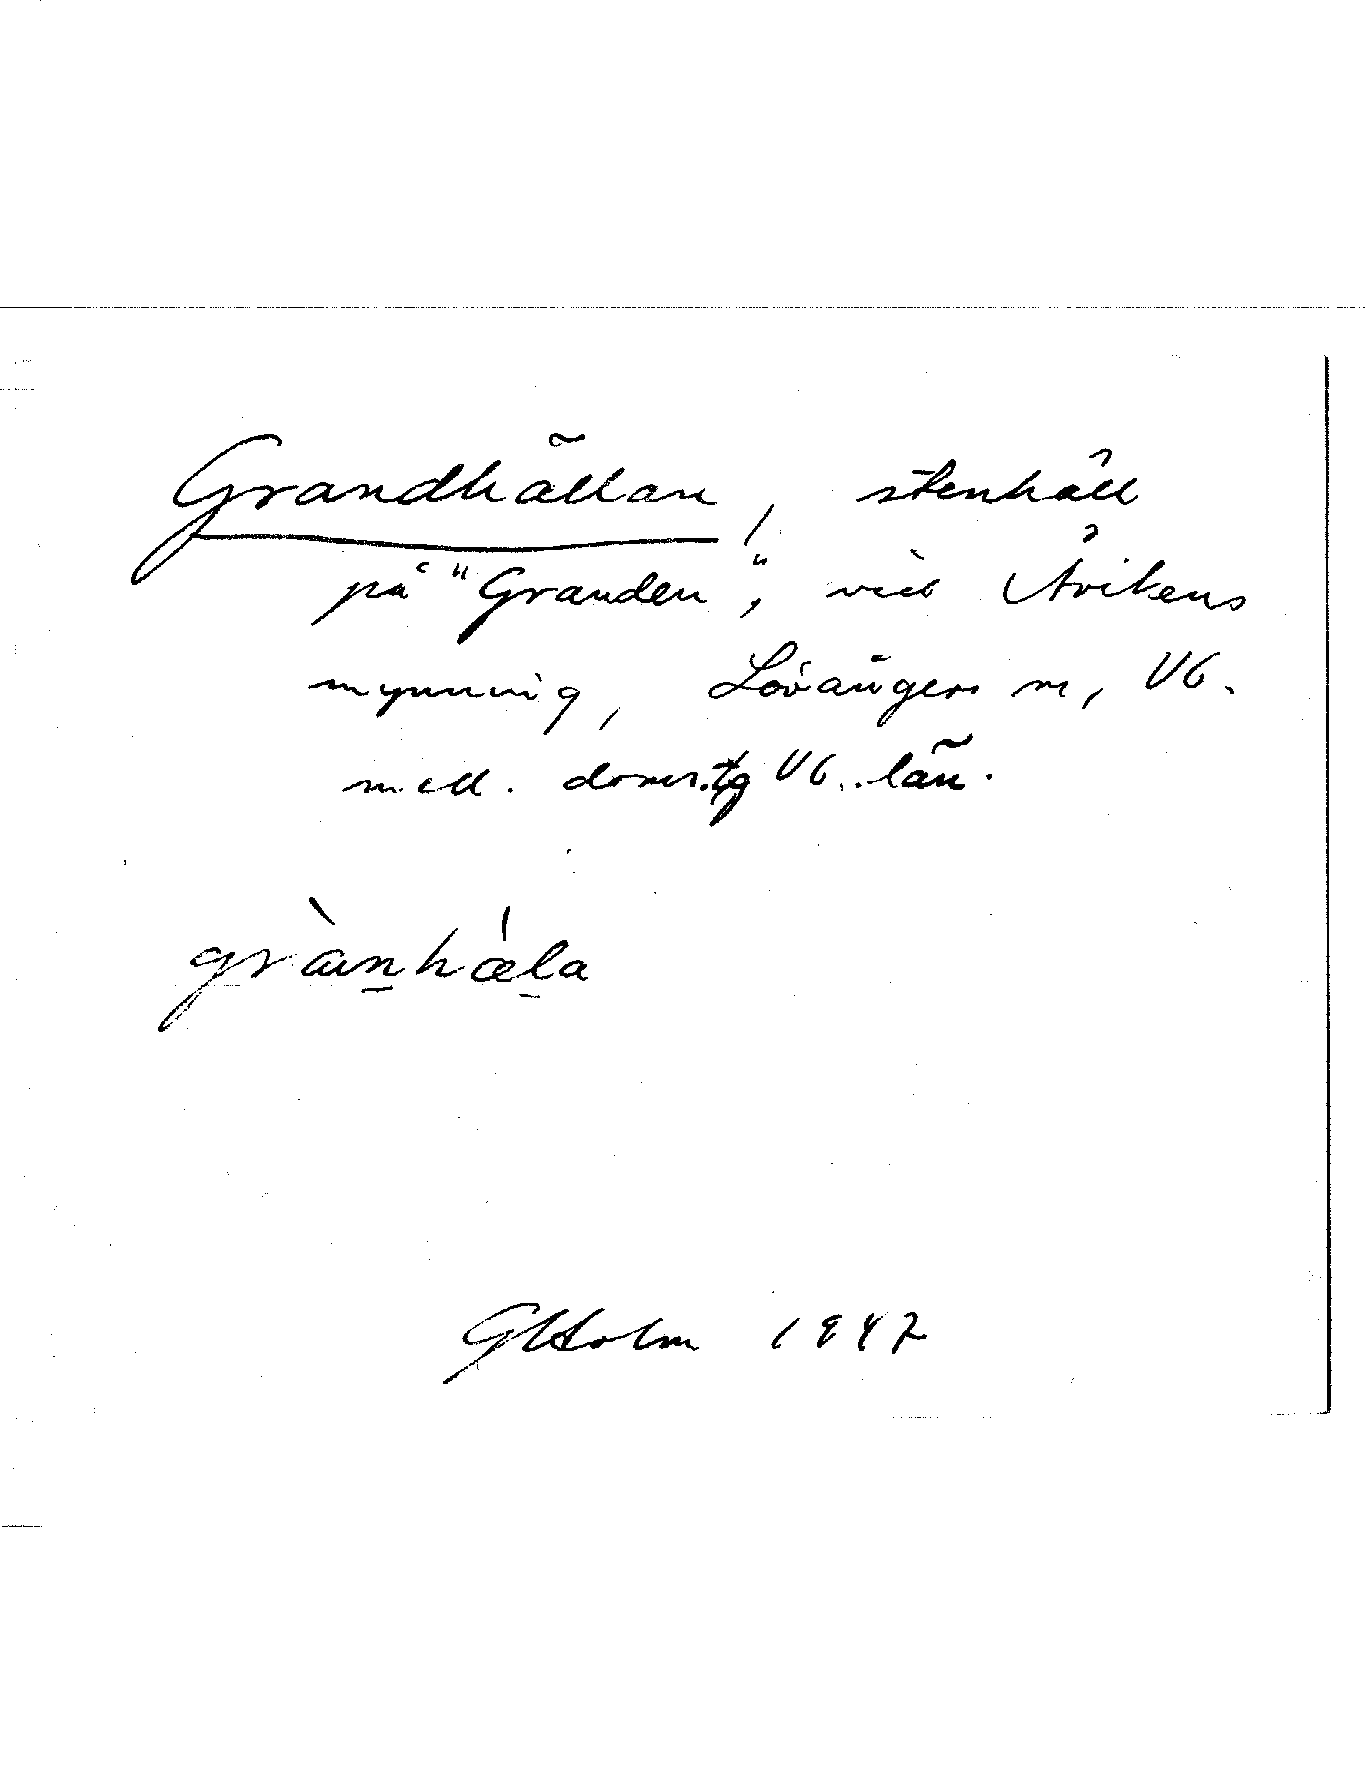 Grandhällan, stenhäll
på "Granden", vid Åvikens
mynning, Lövångers sn, Vb.
mell. doms.tg Vb. län.
grànhǽla
GHolm 1947